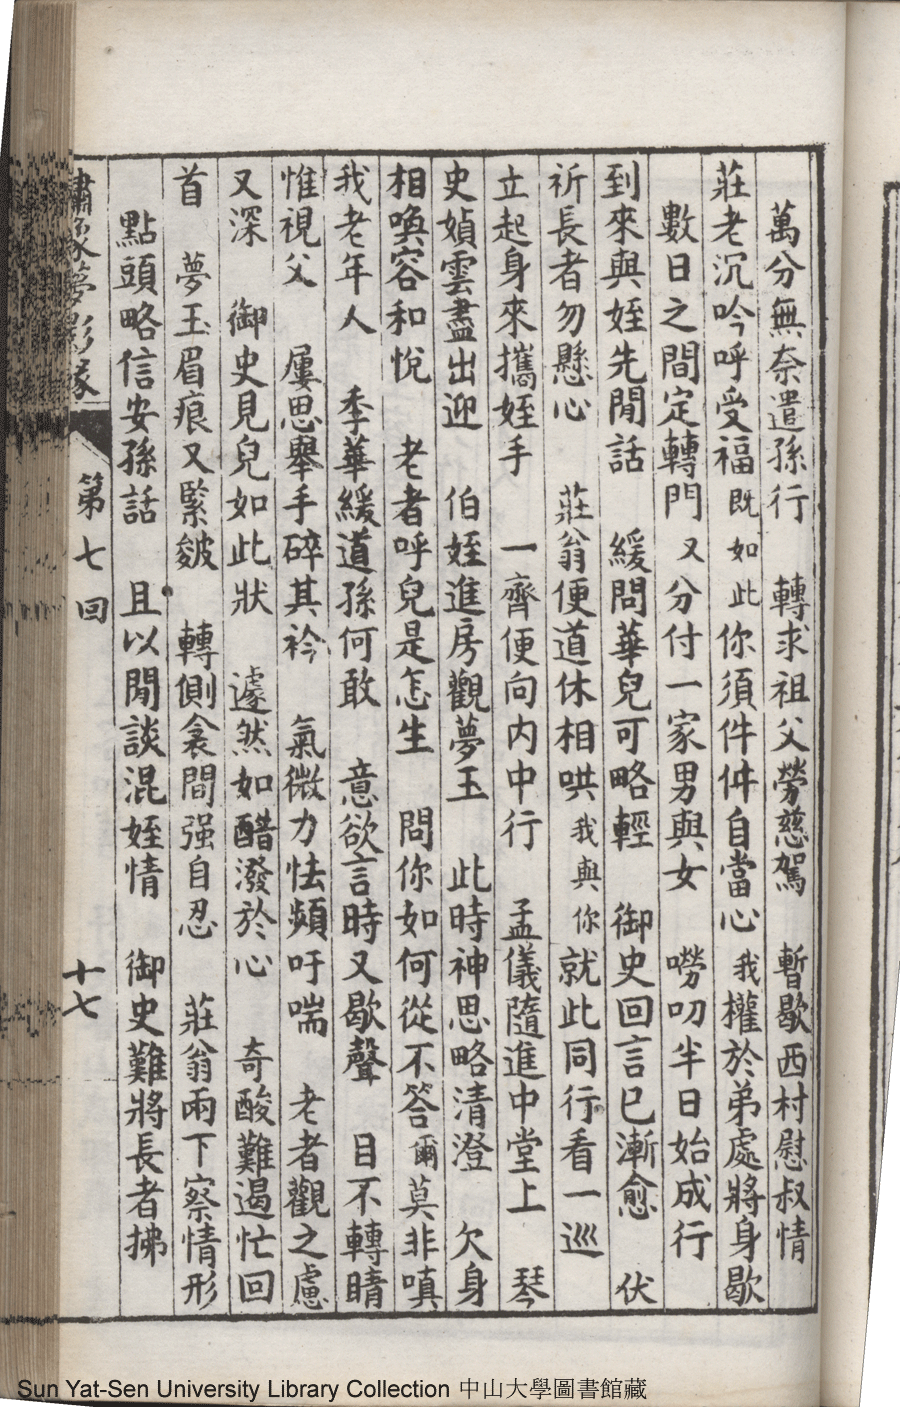 萬分無奈遣孫行　轉求祖父勞慈駕　暫歇西村慰叔情
莊老沉吟呼受福既如此你須件件自當心我權於弟處將身歇
數日之間定轉門又分付一家男與女　嘮叨半日始成行
到來與姪先閒話　緩問華兒可略輕　御史回言已漸愈　伏
祈長者勿懸心　莊翁便道休相哄我與你就此同行看一巡
立起身來攜姪手　一齊便向內中行　孟儀隨進中堂上　琴
史媜雲盡出迎　伯姪進房觀夢玉　此時神思略清澄　欠身
相喚容和悅　老者呼兒是怎生　問你如何從不答爾莫非嗔
我老年人　季華緩道孫何敢　意欲言時又歇聲　目不轉睛
惟視父　屢思舉手碎其衿　氣微力怯頻吁喘　老者觀之慮
又深　御史見兒如此狀　遽然如醋潑於心　奇酸難遏忙回
首　夢玉眉痕又緊皴　轉側衾間强自忍　莊翁兩下察情形
點頭略信安孫話　且以閒談混姪情　御史難將長者拂
夢影緣
第七回
十七
Sun Yat-Sen University Library Collection 中山大學圖書館藏